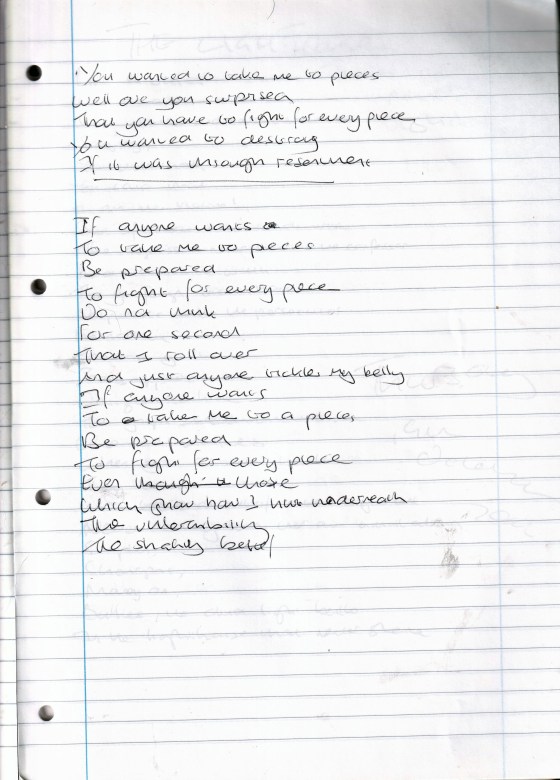 You wanted to take me to pieces
Well are you surprised
That you have to fight for every piece
You wanted to destroy
If it was through resentment
If anyone wants
To take me to pieces
Be prepared
To fight for every piece
Do not think
For one second
That I roll over
And just anyone tickles my belly
If anyone wants
To take me to a pieces
Be prepared
To fight for every piece
Even though those
Which show how I hide underneath
The vulnerability
The shaky belief